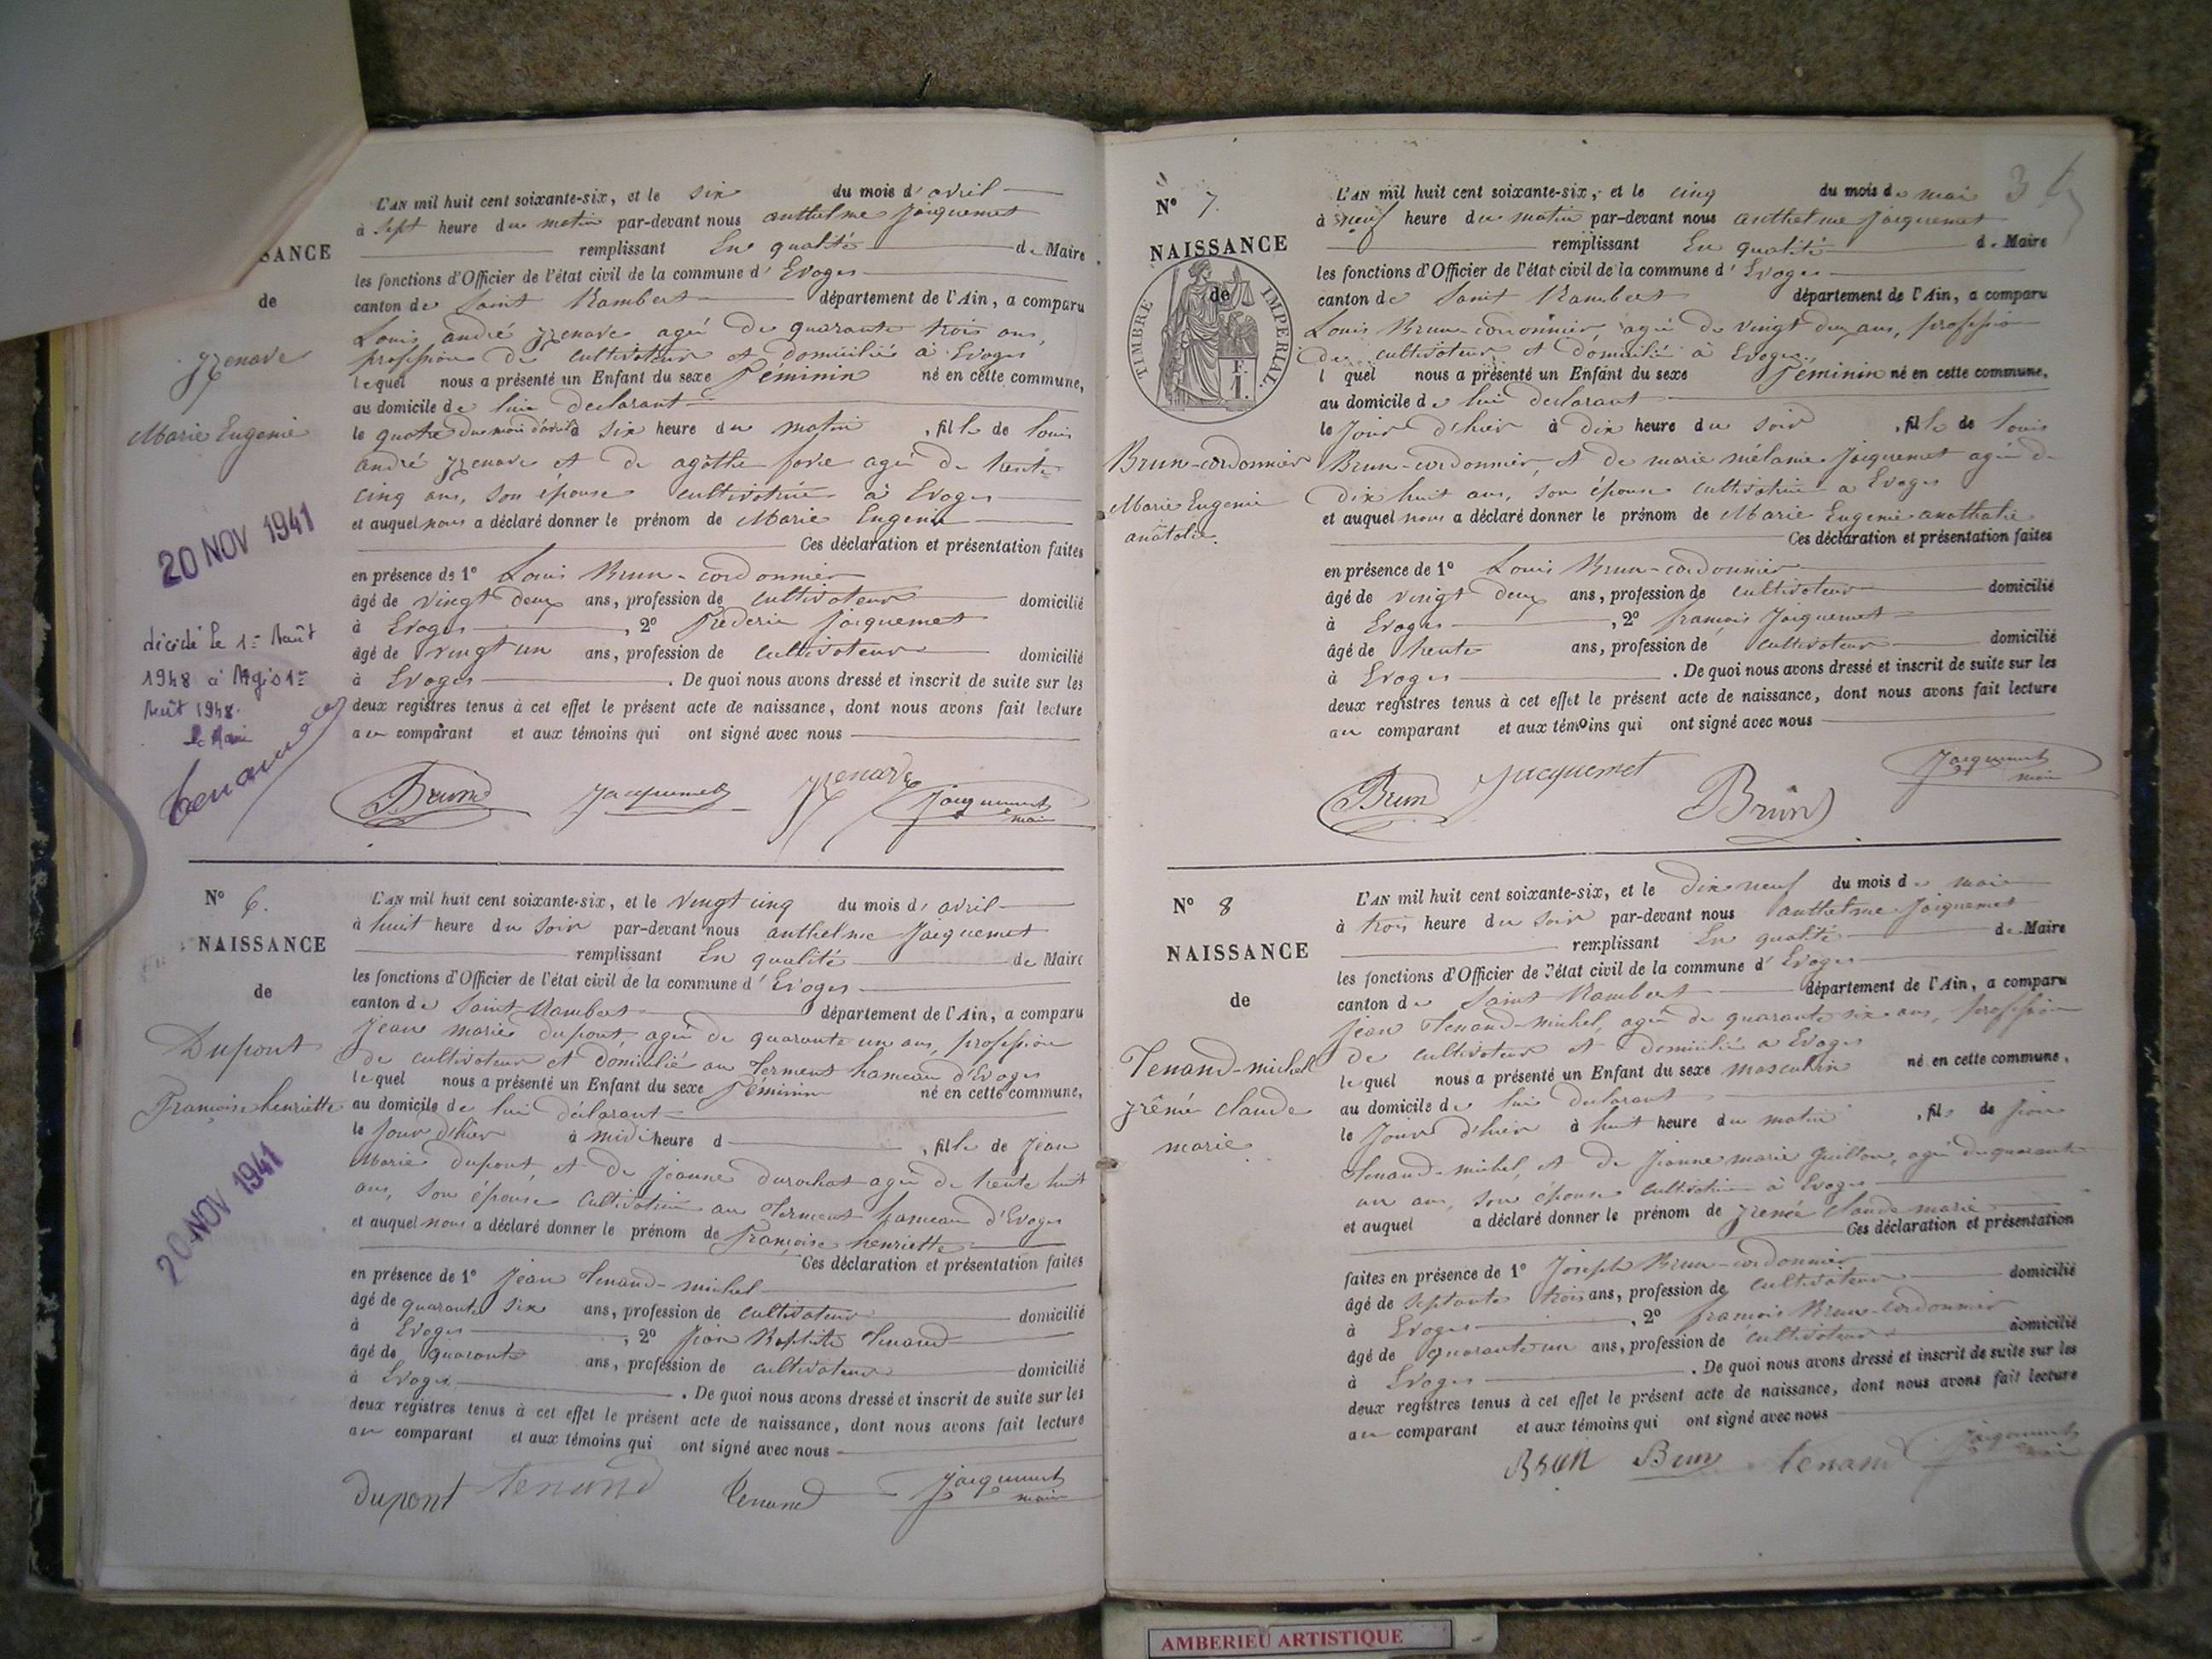 SANCE
de
Grenard
Marie Eugenie
20 NOV 1941
décédé le 1er Août
1948 à
Août 1948.
le Maire
L'AN mil huit cent soixante-six, et le six du mois d'avril
à sept heure du matin par-devant nous anthelme Jacquemet
remplissant En qualité de Maire
les fonctions d'Officier de l'état civil de la commune d'Evoges
canton de Saint Rambert département de l'Ain, a comparu
Louis andré agé de quarante trois ans,
profession de cultivateur et domicilié à Evoges
lequel nous a présenté un Enfant du sexe Féminin né en cette commune,
au domicile de lui declarant
le quatre du mois d'avril à six heure du matin, fille de louis
andré et de agathe favre agée de trente
cinq ans, son épouse cultivatrice à Evoges
et auquel nous a déclaré donner le prénom de Marie Eugenie
Ces déclaration et présentation faites
en présence de 1º Louis Brun-cordonnier
âgé de vingt deux ans, profession de cultivateur domicilié
à Evoges, 2º Frederic Jacquemet
âgé de vingt un ans, profession de cultivateur domicilié
à Evoges. De quoi nous avons dressé et inscrit de suite sur les
deux registres tenus à cet effet le présent acte de naissance, dont nous avons fait lecture
au comparant et aux témoins qui ont signé avec nous
Brun Jacquemet Jacquemet
maire
Nº 6.
NAISSANCE
de
Dupont
Françoise henriette
20 NOV 1941
L'AN mil huit cent soixante-six, et le vingt cinq du mois d'avril
à huit heure du soir par-devant nous anthelme Jacquemet
remplissant En qualité de Maire
les fonctions d'Officier de l'état civil de la commune d'Evoges
canton de Saint Rambert département de l'Ain, a comparu
Jean marie dupont agé de quarante un ans, profession
de cultivateur et domicilié au Terment hameau d'Evoges
lequel nous a présenté un Enfant du sexe Féminin né en cette commune,
au domicile de lui déclarant
le jour d'hier à midi heure d, fille de jean
Marie dupont, et de jeanne durochat agée de trente huit
ans, son épouse cultivatrice au Terment hameau d'Evoges
et auquel nous a déclaré donner le prénom de Françoise henriette
Ces déclaration et présentation faites
en présence de 1º Jean Tenand-michel
âgé de quarante six ans, profession de cultivateur domicilié
à Evoges, 2º jean Baptiste Tenand
âgé de quarante ans, profession de cultivateur domicilié
à Evoges. De quoi nous avons dressé et inscrit de suite sur les
deux registres tenus à cet effet le présent acte de naissance, dont nous avons fait lecture
au comparant et aux témoins qui ont signé avec nous
dupont tenand tenand Jacquemet
maire
3
Nº 7.
NAISSANCE
de
TIMBRE IMPERIAL.
F.
1.
Brun-cordonnier
Marie Eugenie
anatolie.
L'AN mil huit cent soixante-six, et le cinq du mois de mai
à neuf heure du matin par-devant nous anthelme Jacquemet
remplissant En qualité de Maire
les fonctions d'Officier de l'état civil de la commune d'Evoges
canton de Saint Rambert département de l'Ain, a comparu
Louis Brun-cordonnier, agé de vingt deux ans, profession
de cultivateur et domicilié à Evoges,
l quel nous a présenté un Enfant du sexe Féminin né en cette commune,
au domicile de lui declarant
le Jour d'hier à dix heure du soir, fille de louis
Brun-cordonnier, et de marie mélanie Jacquemet agée de
Dix huit ans, son épouse cultivatrice a Evoges
et auquel nous a déclaré donner le prénom de Marie Eugenie anathalie
Ces déclaration et présentation faites
en présence de 1º Louis Brun-cordonnier
âgé de vingt deux ans, profession de cultivateur domicilié
à Evoges, 2º françois Jacquemet
âgé de trente ans, profession de cultivateur domicilié
à Evoges. De quoi nous avons dressé et inscrit de suite sur les
deux registres tenus à cet effet le présent acte de naissance, dont nous avons fait lecture
au comparant et aux témoins qui ont signé avec nous
Brun Jacquemet Brun Jacquemet
maire
Nº 8
NAISSANCE
de
Tenand-michel
claude
marie
L'AN mil huit cent soixante-six, et le Dix neuf du mois de mai
à trois heure du soir par-devant nous anthelme Jacquemet
remplissant En qualité de Maire
les fonctions d'Officier de l'état civil de la commune d'Evoges
canton de Saint Rambert département de l'Ain, a comparu
Jean Tenand-michel, agé de quarante six ans, profession
de cultivateur et domicilié a Evoges
lequel nous a présenté un Enfant du sexe masculin né en cette commune,
au domicile de lui declarant
le Jour d'hier à huit heure du matin, fils de jean
Tenand-michel, et de jeanne marie Guillon, agée de quarante
un ans, son épouse cultivatrice à Evoges
et auquel a déclaré donner le prénom de claude marie
Ces déclaration et présentation
faites en présence de 1º Joseph Brun-cordonnier
âgé de septante trois ans, profession de cultivateur domicilié
à Evoges, 2º françois Brun-cordonnier
âgé de quarante un ans, profession de cultivateur domicilié
à Evoges. De quoi nous avons dressé et inscrit de suite sur les
deux registres tenus à cet effet le présent acte de naissance, dont nous avons fait lecture
au comparant et aux témoins qui ont signé avec nous
Brun Brun tenand Jacquemet
maire
AMBERIEU ARTISTIQUE